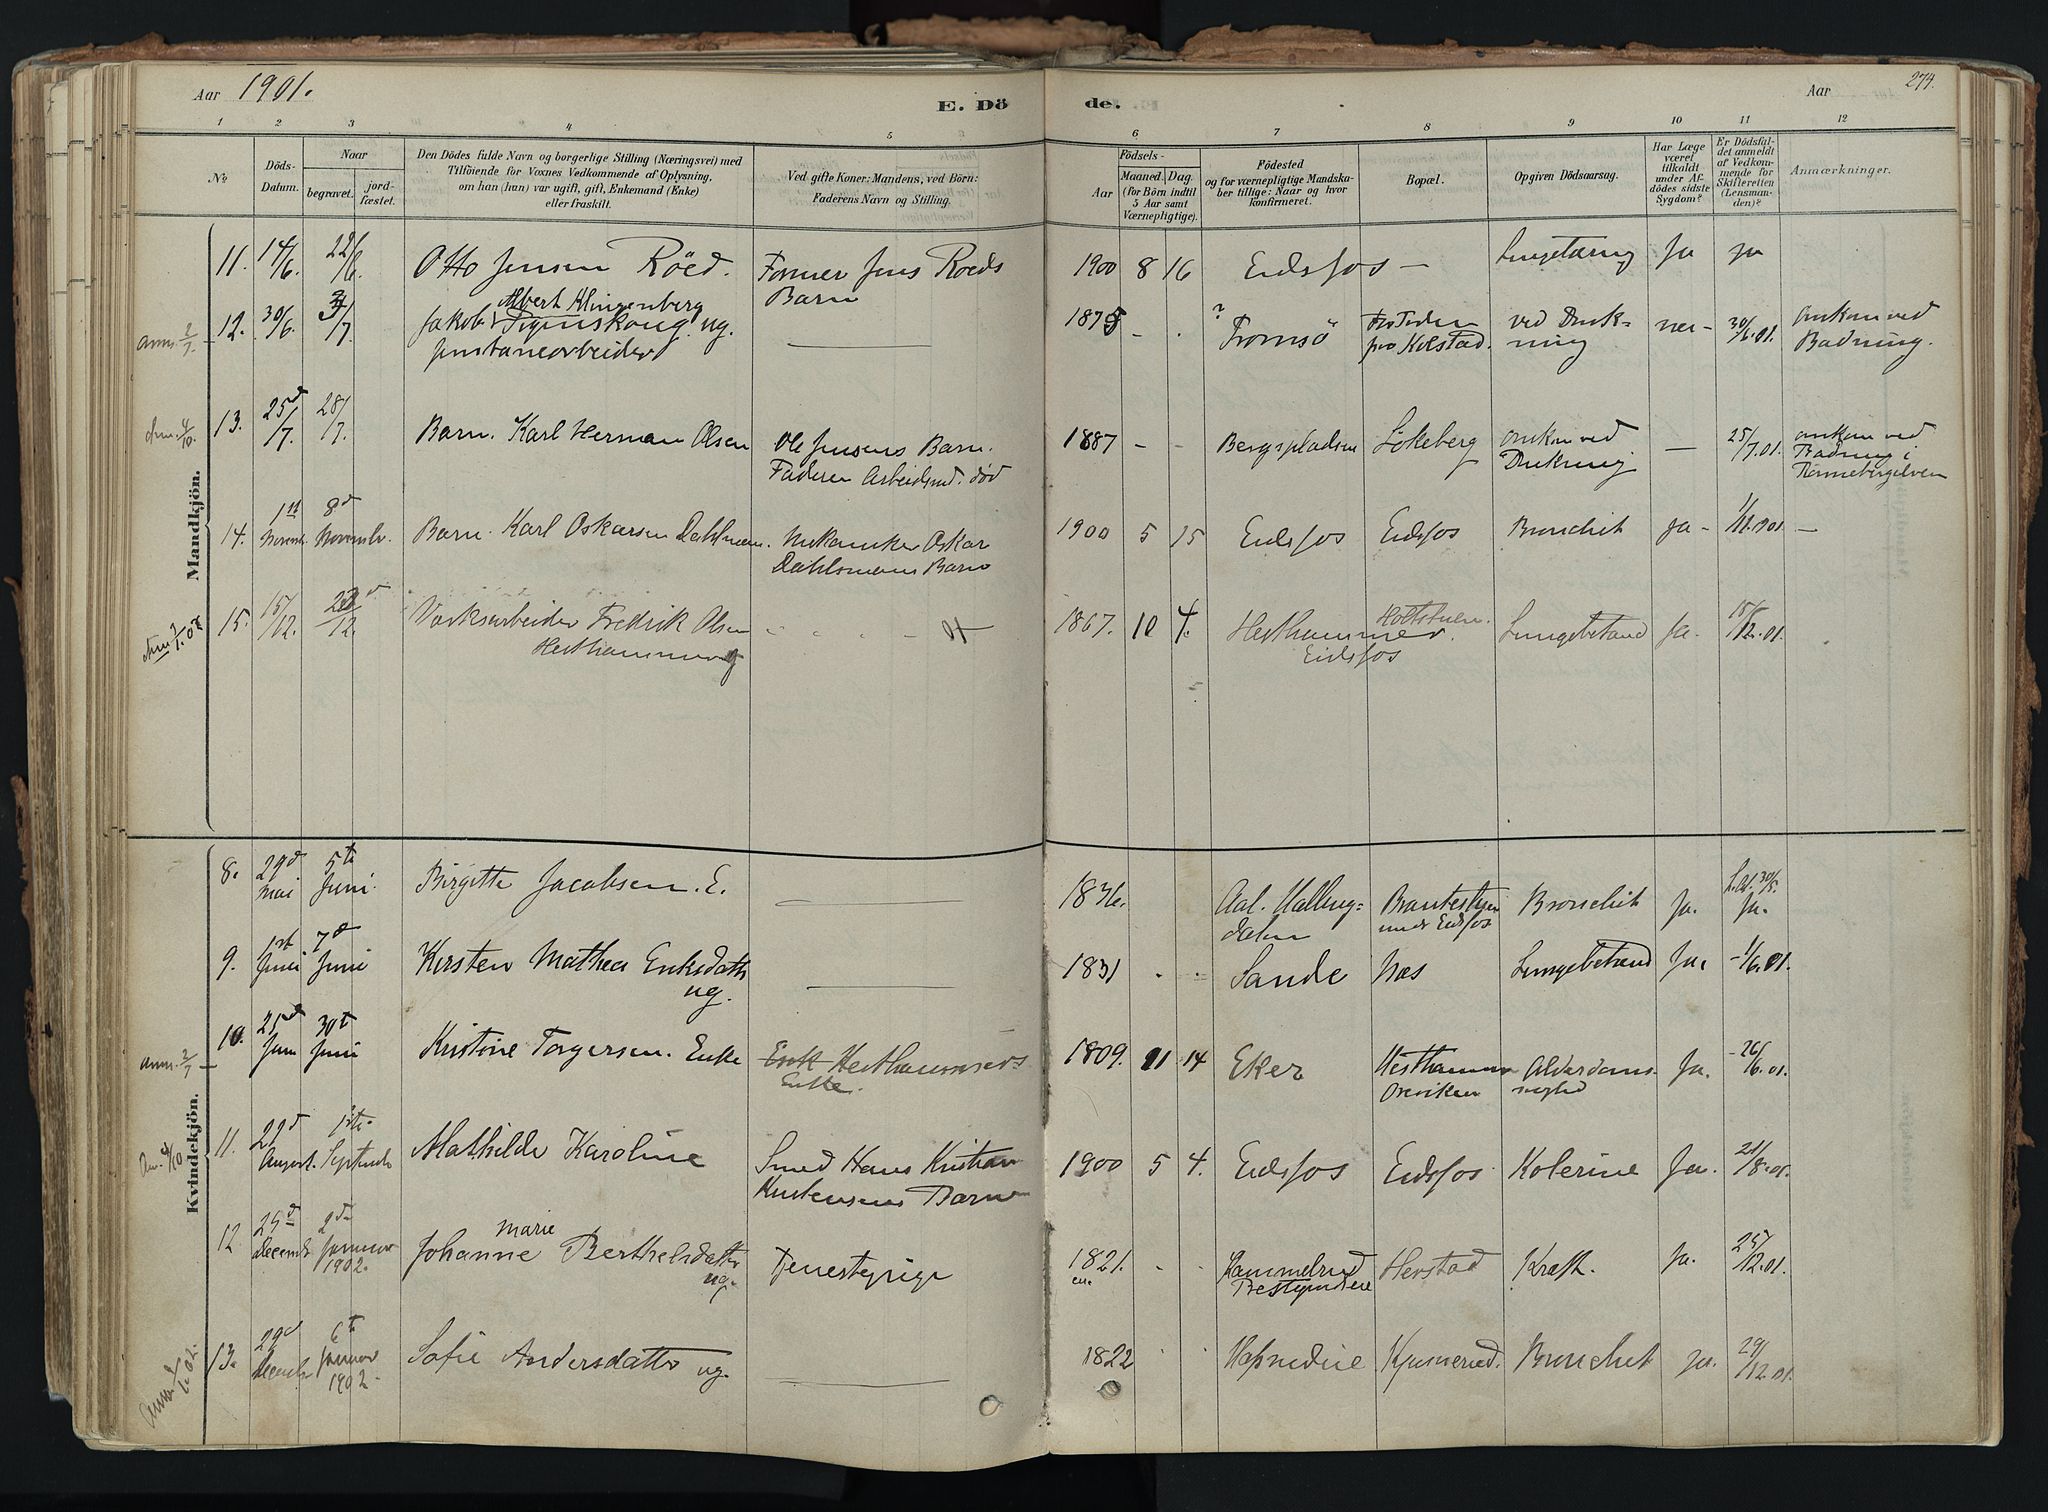 Aar 1901.
E. Dö
de.
Aar
274.
1 2 3 4 5 6 7 8 9 10 11 12
No
Döds-
Datum.
Naar
begravet.
jord-
fæstet.
Den Dödes fulde Navn og borgerlige Stilling (Næringsvei) med
Tilföiende for Voxnes Vedkommende af Oplysning,
om han (hun) var ugift, gift, Enkemand (Enke)
eller fraskilt.
Ved gifte Koner: Mandens, ved Börn:
Faderens Navn og Stilling.
Födsels-
Aar
Maaned.
Dag.
(for Börn indtil
5 Aar samt
Værnepligtige).
Födested
og for værnepligtige Mandska-
ber tillige: Naar og hvor
konfirmeret.
Bopæl.
Opgiven Dödsaarsag.
Har Læge
været
tilkaldt
under Af-
dödes sidste
Sygdom?
Er Dödsfal-
det anmeldt
af Vedkom-
mende for
Skifteretten
(Lensman-
den)?
Anmærkninger.
Mandkjön.
11. 14/6. 22/6. Otto Jensen Röed. Former Jens Roeds
Barn
1900 8 16 Eidsfos — Ja ja
anm. 2/7 —
12. 30/6. /7 Jakob Albert Klingenberg
ug.
1875 - . ? Tromsö
fra Kolstad.
ved Druk-
ning
nei - 30/6.01. omkom ved
Badning.
4/10.
13. 25d/7. 28/7. Barn. Karl Herman Olsen Ole Jensens Barn.
Faderen Arbeidsmd. död
1887 - - Bergspladsen Lökeberg omkom ved
Drukning
— 25/7.01. omkom ved
Badning i
14. 1st Novemb. 8d Novemb. Barn. Karl Oskarsen Dahlmann. Mekaniker Oskar
Dahlsmans Barn
1900 5 15 Eidsfos Eidsfos Bronchit Ja - 1/11.901. —
15. 15/12. /12. Værksarbeider Fredrik Olsen
Hesthammer
1867. 10 4. Hesthammer.
Eidsfos
Lungebetænd Ja. 15/12.01.
Kvindekjön.
8. 29d Mai 5te Juni. Birgitte Jacobsen. E. ———
1836. Aal. Halling=
dalen
under Eidsfos
Bronchit Ja. 30/5.
Ja.
9. 1st Juni 7d Juni Kirsten Mathea Eriksdatter
ug.
———
1831 . . Sande Næs Lungebetænd Ja. - 1/6.01.
anm. 2/7 —
10. 25d Juni 30te Juni Kristine Torgersen. Enke Hesthammers
Enke.
1809. 11 14 Eker Hesthammer
Alderdoms-
svaghed
Ja. - 26/6.01.
4/10
11. 29d August. 1ste September Mathilde Karoline Smed Hans Kristian
Kristensens Barn
1900 5 4. Eidsfos Eidsfos Kolerine Ja. /8.01.
12. 25d Decemb 2de Januar
1902.
Johanne Marie Berthelsdatter
ug.
Tjenestepige
1821. . . Kræft. Ja. 25/12.01.
13. 29d Decemb 6te Januar
1902.
Sofie Andersdatter ug. ———
1822 . . Bronchit ja. 29/12.01.